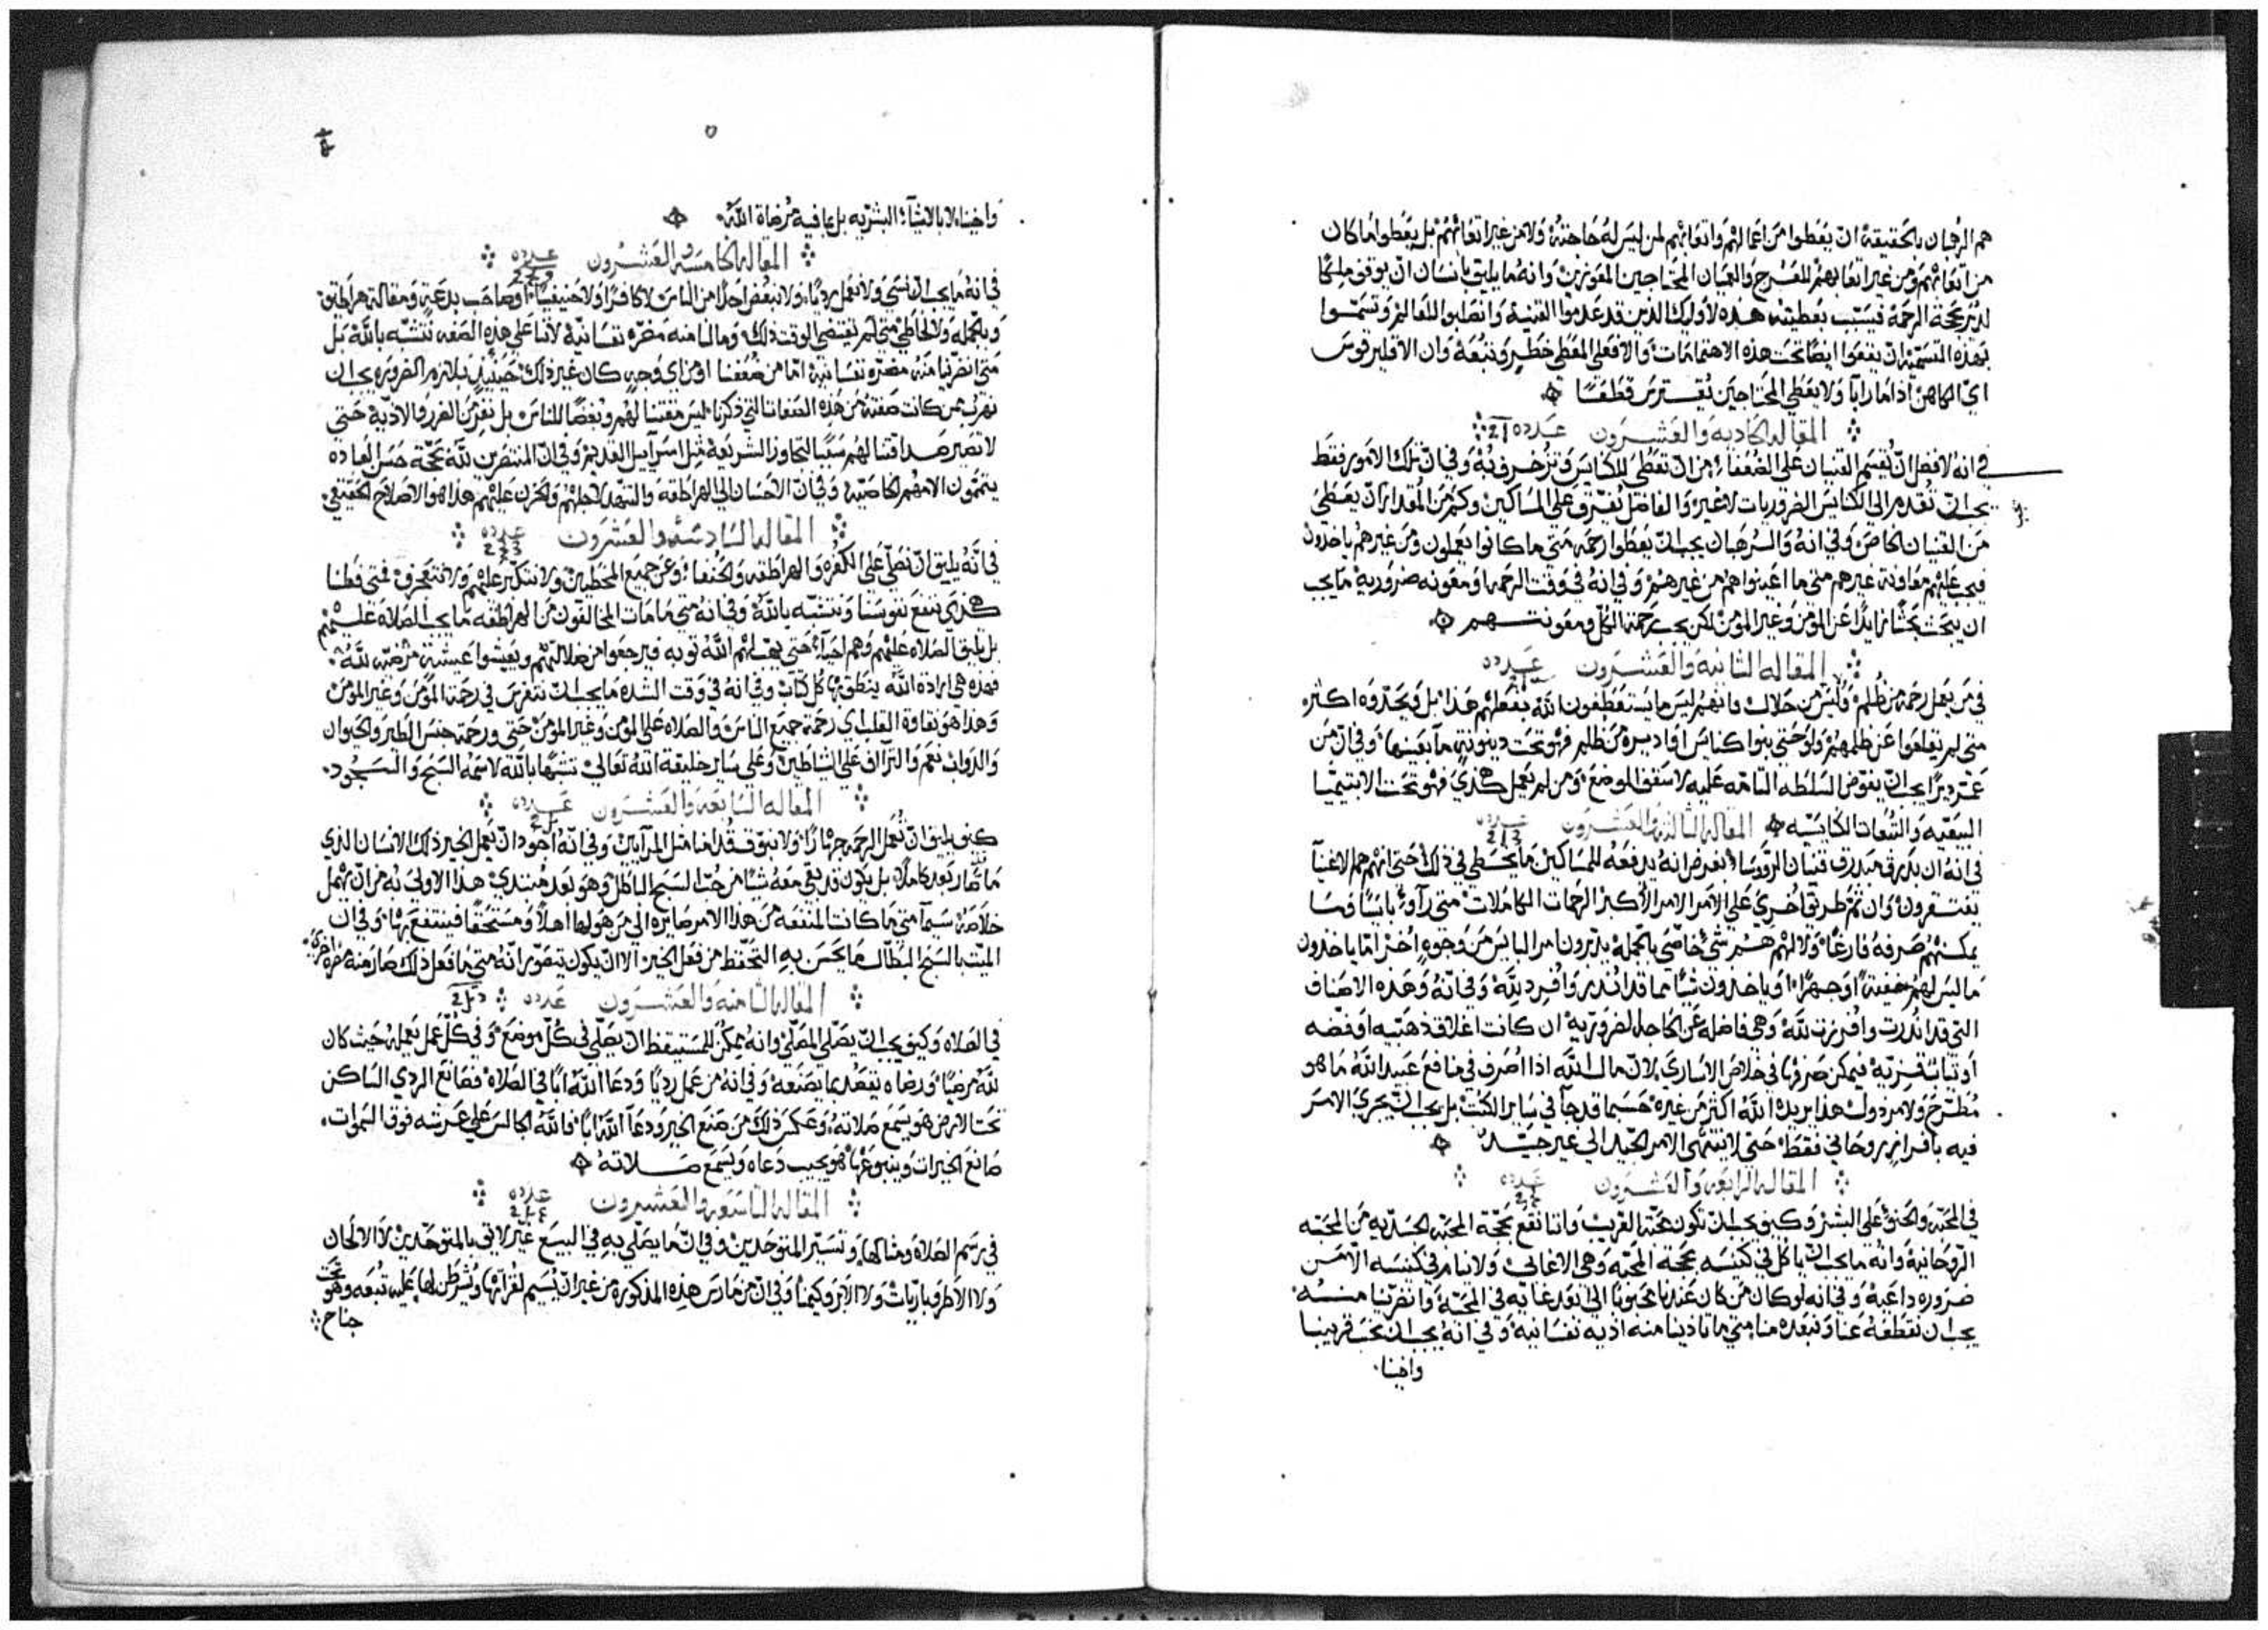 هم الرهبان بالحقيقة ان يعطوا من اعمالهم واتعابهم لمن ليس له حاجته ولا من غير اتعابهم بل يعطوا ما كان
من اتعابهم ومن غير اتعابهم للعرج والعميان المحتاجين المعوزين وانه ما يليق بانسان ان يوفي ملكًا
لدير بحجة الرحمة فيسبب بعطيته هذه لاوليك الذين قد عدموا القنية وانصلبوا للعالم وتسموا
بهذه التسمية ان يقعوا ايضًا تحت هذه الاهتمامات والا فعلي المعطي خطر وتبعة وان الاقليرقوس
اي الكاهن اذا ما رابا ولا يعطي المحتاجين يفترس قطعًا
المقاله الحاديه والعشرون عدده
في انه الافضل ان تقسم القنيان على الضعفاء من ان تعطى للكنايس وتزخرف به وفي ان تلك الامور فقط
يجب ان تقدم الى الكنايس الضروريات لا غير والفاضل يفرق على المساكين وكم من المقدار ان يعطى
من القنيان الخاص وفي انه والرهبان يجب ان يعطوا رحمه متى ما كانوا يعملون ومن غيرهم ياخذون
فيجب عليهم معاونة غيرهم متى ما اعينوا هم من غيرهم وفي انه في وقت الرحمه او معونه ضرورية ما يجب
ان يبحث بحثًا زايدًا عن المومن وغير المومن لكن يجب رحمة الكل ومعونتهم
المقاله الثانيه والعشرون عدده
في من يعمل رحمه من ظلم وليس من حلال وانهم ليس ما يستعطفون الله بفعلهم هذا بل ويحدوه اكثر
متى لم يقلعوا عن ظلمهم ولو حتى بنوا كنايس او اديرة من ظلم فهو تحت دينونة ما بعينها وفي ان من
عمر ديرًا يجب ان يفوض السلطه التامه عليه لاسقف الموضع ومن لم يعمل هكذي فهو تحت الابتيميا
البيعيه والتبعات الكنايسيه المقاله الثالثه والعشرون عدده
في انه ان بذرق مبذرق قنيان الروسا بغرض انه يدفعه للمساكين ما يخطي في ذلك حتى انهم هم الاغنيا
يفتقرون وان ثم طريق اخرى على الامر الامر الاكبر الرحمات الكاملات متى راوا بايسًا وما
يمكنهم صرفه فارغًا ولا لهم هم شي خاصي بالجملة يدبرون امر البايس من وجوه اخر اما ياخذون
ما ليس لهم خفية او جهرًا او ياخذون شيًا مما قد انذر وافرد لله وفي انه وهذه الاصناف
التي قد انذرت وافرزت لله وهي فاضله عن الحاجه الضرورية ان كانت اغلاق ذهبيه او فضه
او ثياب قزيه فيمكن صرفها في خلاص الاسارى لان مال الله اذا اصرف في منافع عبيد الله ما هو
مطرح ولا مرذول هذا يريده الله اكثر من غيره حسبما قد جا في ساير الكتب بل يجب ان يجري الامر
فيه بافراز روحاني فقط حتى لا ينتهي الامر الجيد الى غير جيد
المقاله الرابعه والعشرون عدده
في المحبه والحنو على البشر وكيف يجب ان تكون محبة القريب واننا نقع بحجة المحبه الجسديه من المحبه
الروحانية وانه ما يجب ان ياكل في كنيسه بحجة المحبه وهي الاغابي ولا ينام في كنيسه الا من
ضروره داعية وفي انه لو كان من كان عندنا محبوبًا الى بعد غايه في المحبة وانضرينا منه
يجب ان نقطعه عنا ونبعده منا متى ما تاذينا منه اذيه نفسانية وفي انه يجب ان نحب قريبنا
واخينا
واخينا لا بالاشياء البشريه بل بما فيه مرضاة الله
المقاله الخامسه والعشرون عدده
في انه ما يجب ان نسي ولا نعمل رديًا ولا نبغض احدًا من الناس لا كافرًا ولا حنيفيًا او صاحب بدعة ومقالة هراطيق
وبالجمله ولا الخاطي متى لم يقتضي الوقت ذلك وما لنا منه مضره نفسانية لاننا على هذه الصفه نتشبه بالله بل
متى انضرينا منه مضره نفسانية اما من ضعفنا او من اي وجه كان غير ذلك حينيذ يلازم الضروره يجب ان
نهرب ممن كانت صفته من هذه الصفات التي ذكرنا ليس مقتنا لهم وبغضًا للناس بل نفر من الضرر والاذية حتى
لا تصير صداقتنا لهم سببًا لتجاوز الشريعة مثل اسراييل القديم وفي ان المنتصرين لله بحجة حسن العباده
يتممون الامهم الخاصيه وفي ان الاحسان الى الهراطقه والتنهد لاجلهم والحزن عليهم هذا هو الاصلاح الحقيقي
المقاله السادسه والعشرون عدده
في انه يليق ان نصلي على الكفره والهراطقه والحنفاء وعن جميع المخطيين ولا نتكبر عليهم ولا نتعجرف فمتى فعلنا
هكذي ننفع نفوسنا ونتشبه بالله وفي انه متى ما مات المخالفون من الهراطقه ما يجب الصلاه عليهم
بل يليق الصلاه عليهم وهم احياء حتى يهب لهم الله توبه فيرجعوا من ضلالتهم ويعيشوا عيشة مرضيه لله
فهذه هي ارادة الله ينطق بها كل كتاب وفي انه في وقت الشده ما يجب ان نتفرس في رحمة المومن وغير المومن
وهذا هو نقاوة القلب اي رحمة جميع الناس والصلاه على المومن وغير المومن حتى ورحمة جنس الطير والحيوان
والدواب نعم والتراف على الشياطين وعلى ساير خليقة الله تعالى تشبهًا بالله لاسمه السبح والسجود
المقاله السابعه والعشرون عدده
كيف يليق ان نعمل الرحمه جهارًا ولا نبوق قدامنا مثل المرايين وفي انه اجود ان يعمل الخير ذلك الانسان الذي
ما صار بعد كاملًا بل يكون قد بقي معه شيًا من حب السبح الباطل وهو بعد مبتدي هذا الاولى به من ان يهمل
خلاصه سيما متى ما كانت المنفعه من هذا الامر صايره الى من هو لها اهلًا ومستحقًا فينتفع بها وفي ان
الميت بالسبح البطال ما يحسن به التحفظ من فعل الخير الا ان يكون يتصور انه متى ما فعل ذلك صار منه مضره اخرى
المقاله الثامنه والعشرون عدده
في الصلاه وكيف يجب ان يصلي المصلي وانه يمكن للمستيقظ ان يصلي في كل موضع وفي كل عمل يعمله حيث كان
لله مرضيًا ورضاه يتعمد بما يصنعه وفي انه من عمل رديًا ودعا الله ابًا في الصلاه فصانع الردي الساكن
تحت الارض هو يسمع صلاته وعكس ذلك من صنع الخير ودعا الله ابًا فالله الجالس على عرشه فوق السموات
صانع الخيرات وينبوعها هو يجيب دعاه ويسمع صلاته
المقاله التاسعه والعشرون عدده
في رسم الصلاه ومثالها وتسير المتوحدين وفي ان ما يصلي به في البيع غير لايق بالمتوحدين لا الالحان
ولا الاطروباريات ولا وفي ان من مارس هذه المذكوره من غير ان يسيم لقراتها ويشرطن لها عليه تبعه وهو تحت
جناح